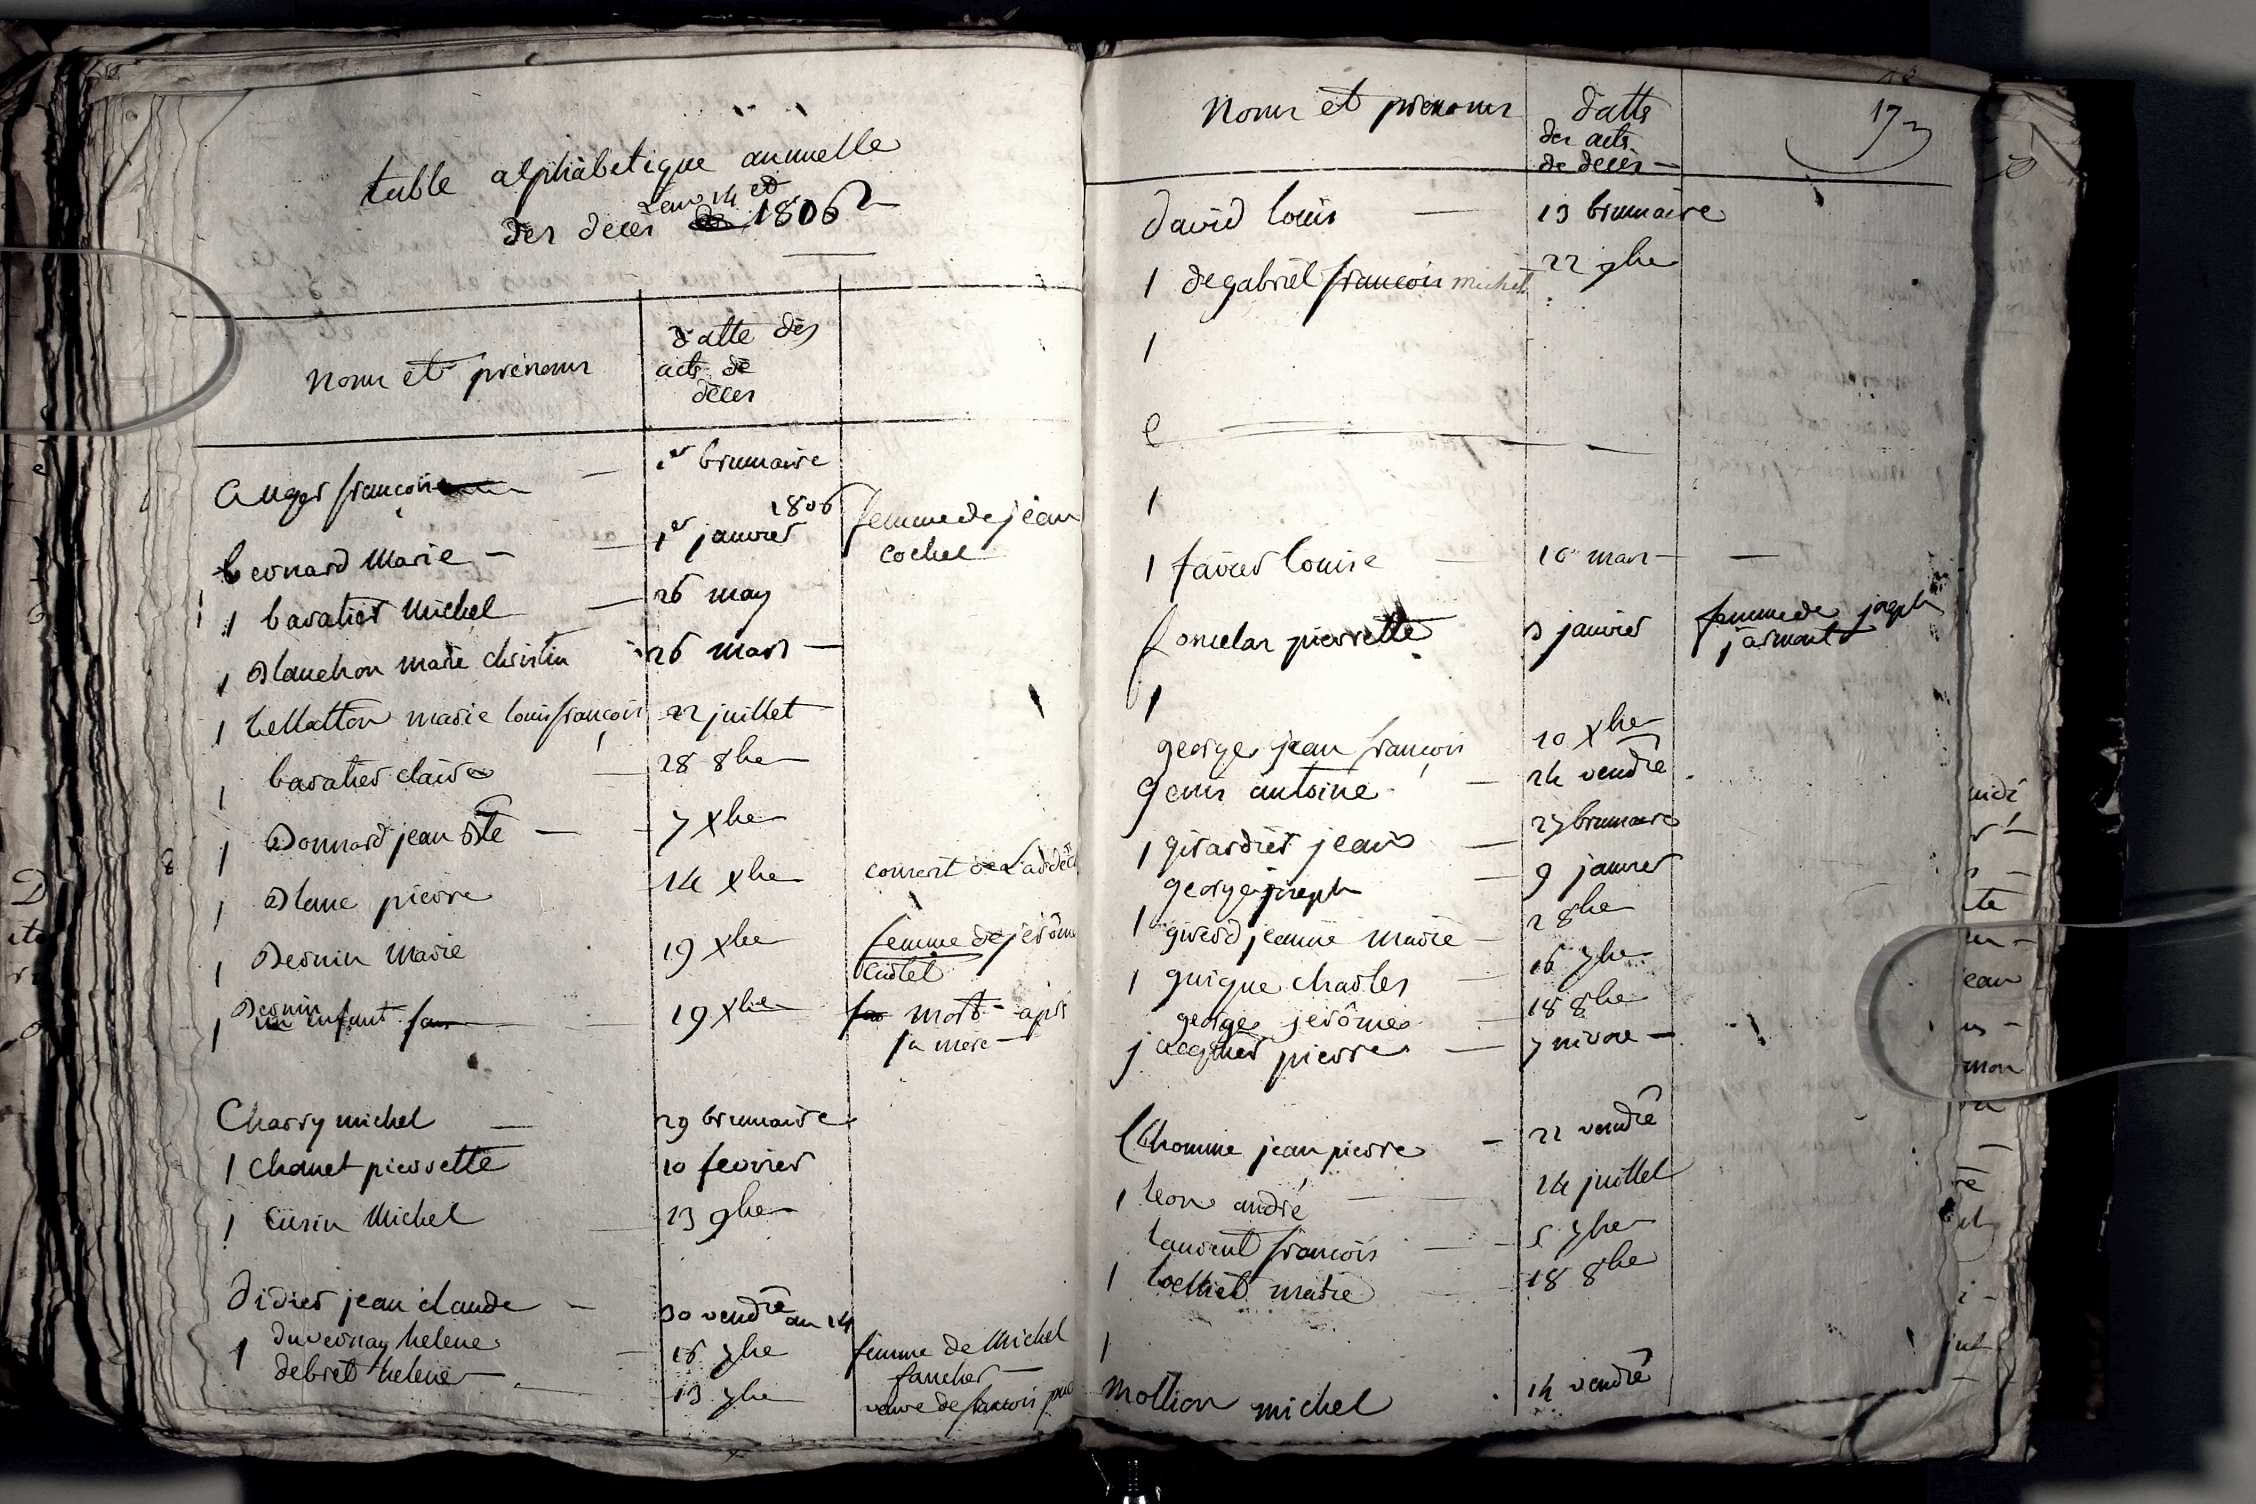 table alphàbetique annuelle
des decès L'an 14 et 1806
Noms et prénoms
datte des
acts de
decès
auger françois
1er brumaire
bernard Marie
1er janvier 1806
femme de jean
cochet
1 baratier Michel
26 may
1 Blanchon marie christin
26 mars
1 bellatton marie louis françois
22 juillet
1 baratier claire
28 8bre
1 Bonnard jean Bte
7 xbre
1 Blanc pierre
14 xbre
1 Bernin Marie
19 xbre
femme de jerôme
1 Bernin
un enfant
19 xbre
mort après
sa mere
Charry michel
29 brumaire
1 chanet pierrette
10 fevrier
1 cusin Michel
13 9bre
didier jean claude
30 vendre an 14
1 duvernay helene
16 7bre
femme de Michel
faucher
debret helene
13 7bre
veuve de françois
Noms et prenoms
datts
des acts
de decès
173
david louis
13 brumaire
1 degabriel françois michel
22 9bre
1
e
1
1 favier louise
10 mars
foncelas pierrette
3 janvier
femme de joseph
jarmont
1
george jean françois
10 xbre
genis antoine
24 vendre
1 girardier jean
27 brumaire
george joseph
9 janvier
1 girerd jeanne Marie
2 8bre
1 guigue charles
16 7bre
george jerôme
18 8bre
jacquier pierre
7 nivose
Lhomme jean pierre
22 vendre
1 leon andré
14 juillet
laurent françois
5 7bre
1 marie
18 8bre
1
Mollion michel
14 vendre